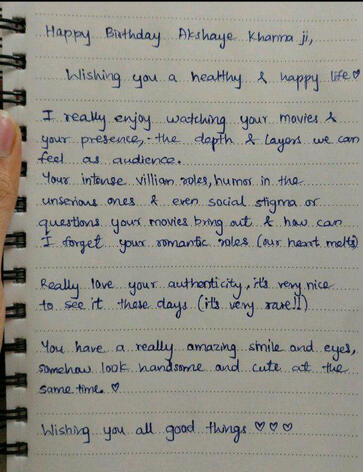 Happy Birthday Akshaye Khanna ji,
Wishing you a healthy & happy life ♡
I really enjoy watching your movies &
your presence, - the depth & layers we can
feel as audience.
Your intense villian roles, humor in the
unserious ones & even social stigma or
questions your movies bring out & how can
I forget your romantic roles (our heart melts)
Really love your authenticity, it's very nice
to see it these days (it's very rare!!)
You have a really amazing smile and eyes,
somehow look handsome and cute at the
same time. ♡
Wishing you all good things ♡ ♡ ♡